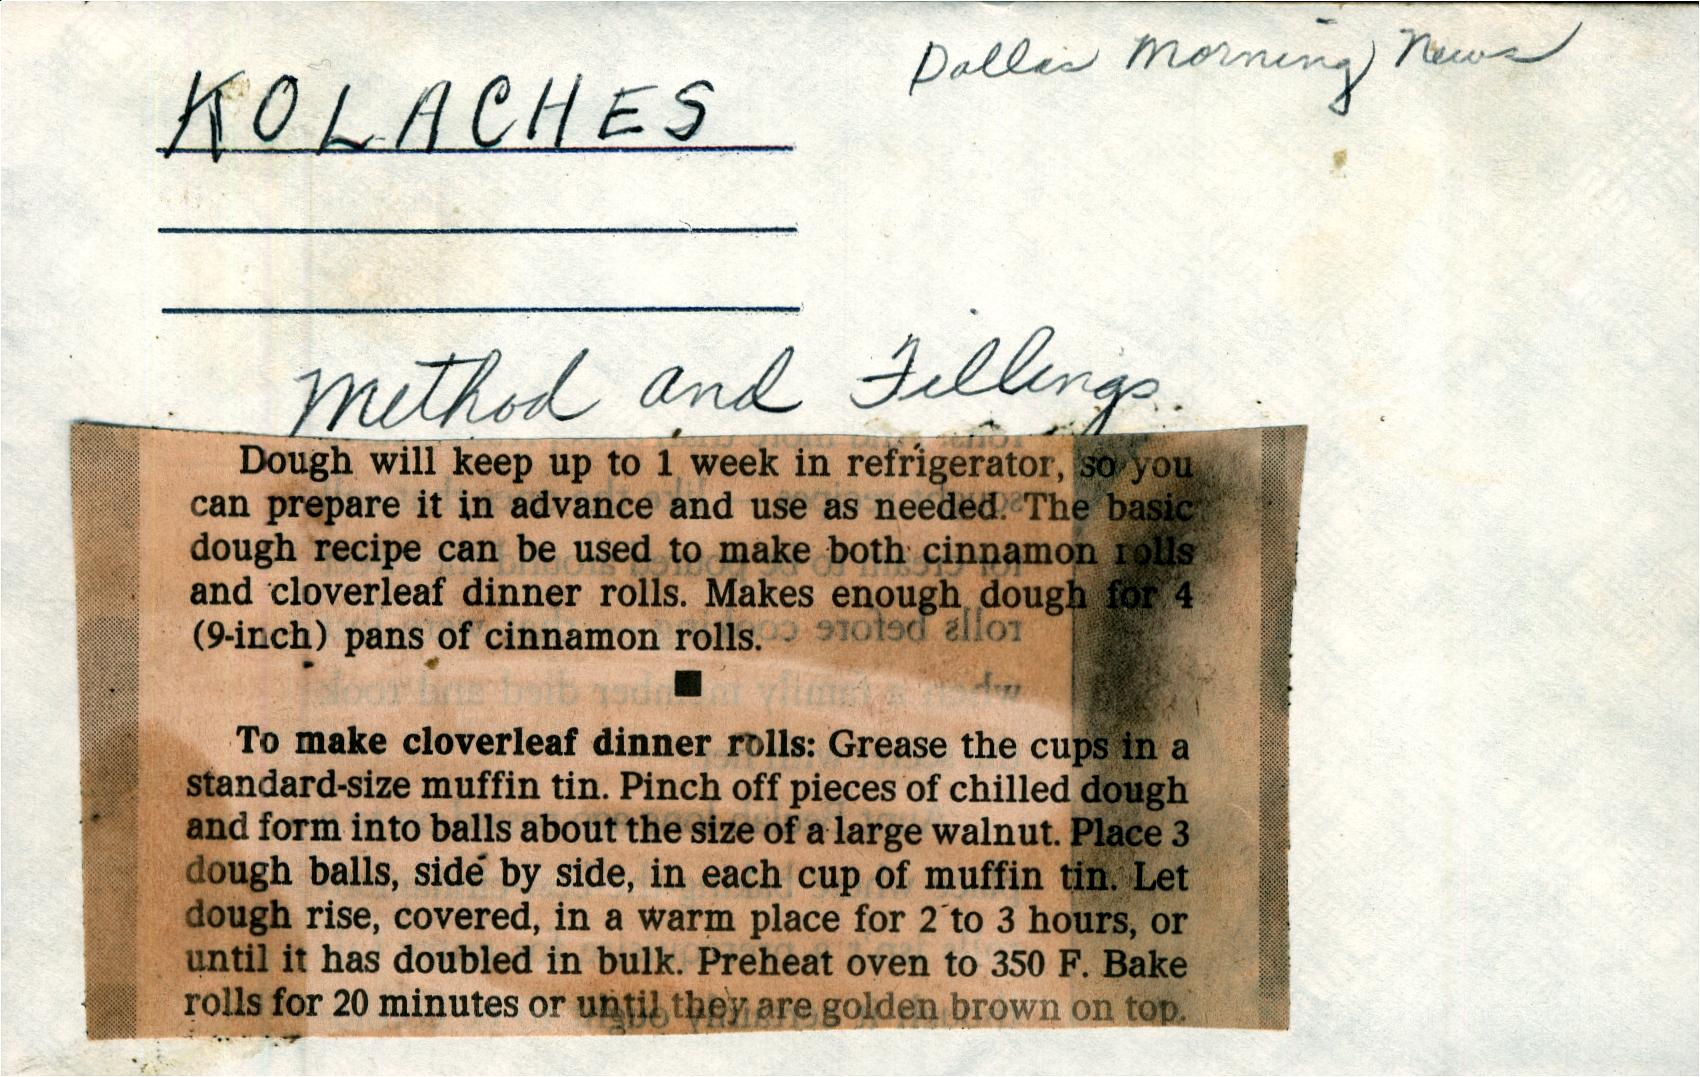 Dallas Morning News
KOLACHES
Method and Fillings
Dough will keep up to 1 week in refrigerator, so you
can prepare it in advance and use as needed. The basic
dough recipe can be used to make both cinnamon rolls
and cloverleaf dinner rolls. Makes enough dough for 4
(9-inch) pans of cinnamon rolls.
■
To make cloverleaf dinner rolls: Grease the cups in a
standard-size muffin tin. Pinch off pieces of chilled dough
and form into balls about the size of a large walnut. Place 3
dough balls, side by side, in each cup of muffin tin. Let
dough rise, covered, in a warm place for 2 to 3 hours, or
until it has doubled in bulk. Preheat oven to 350 F. Bake
rolls for 20 minutes or until they are golden brown on top.